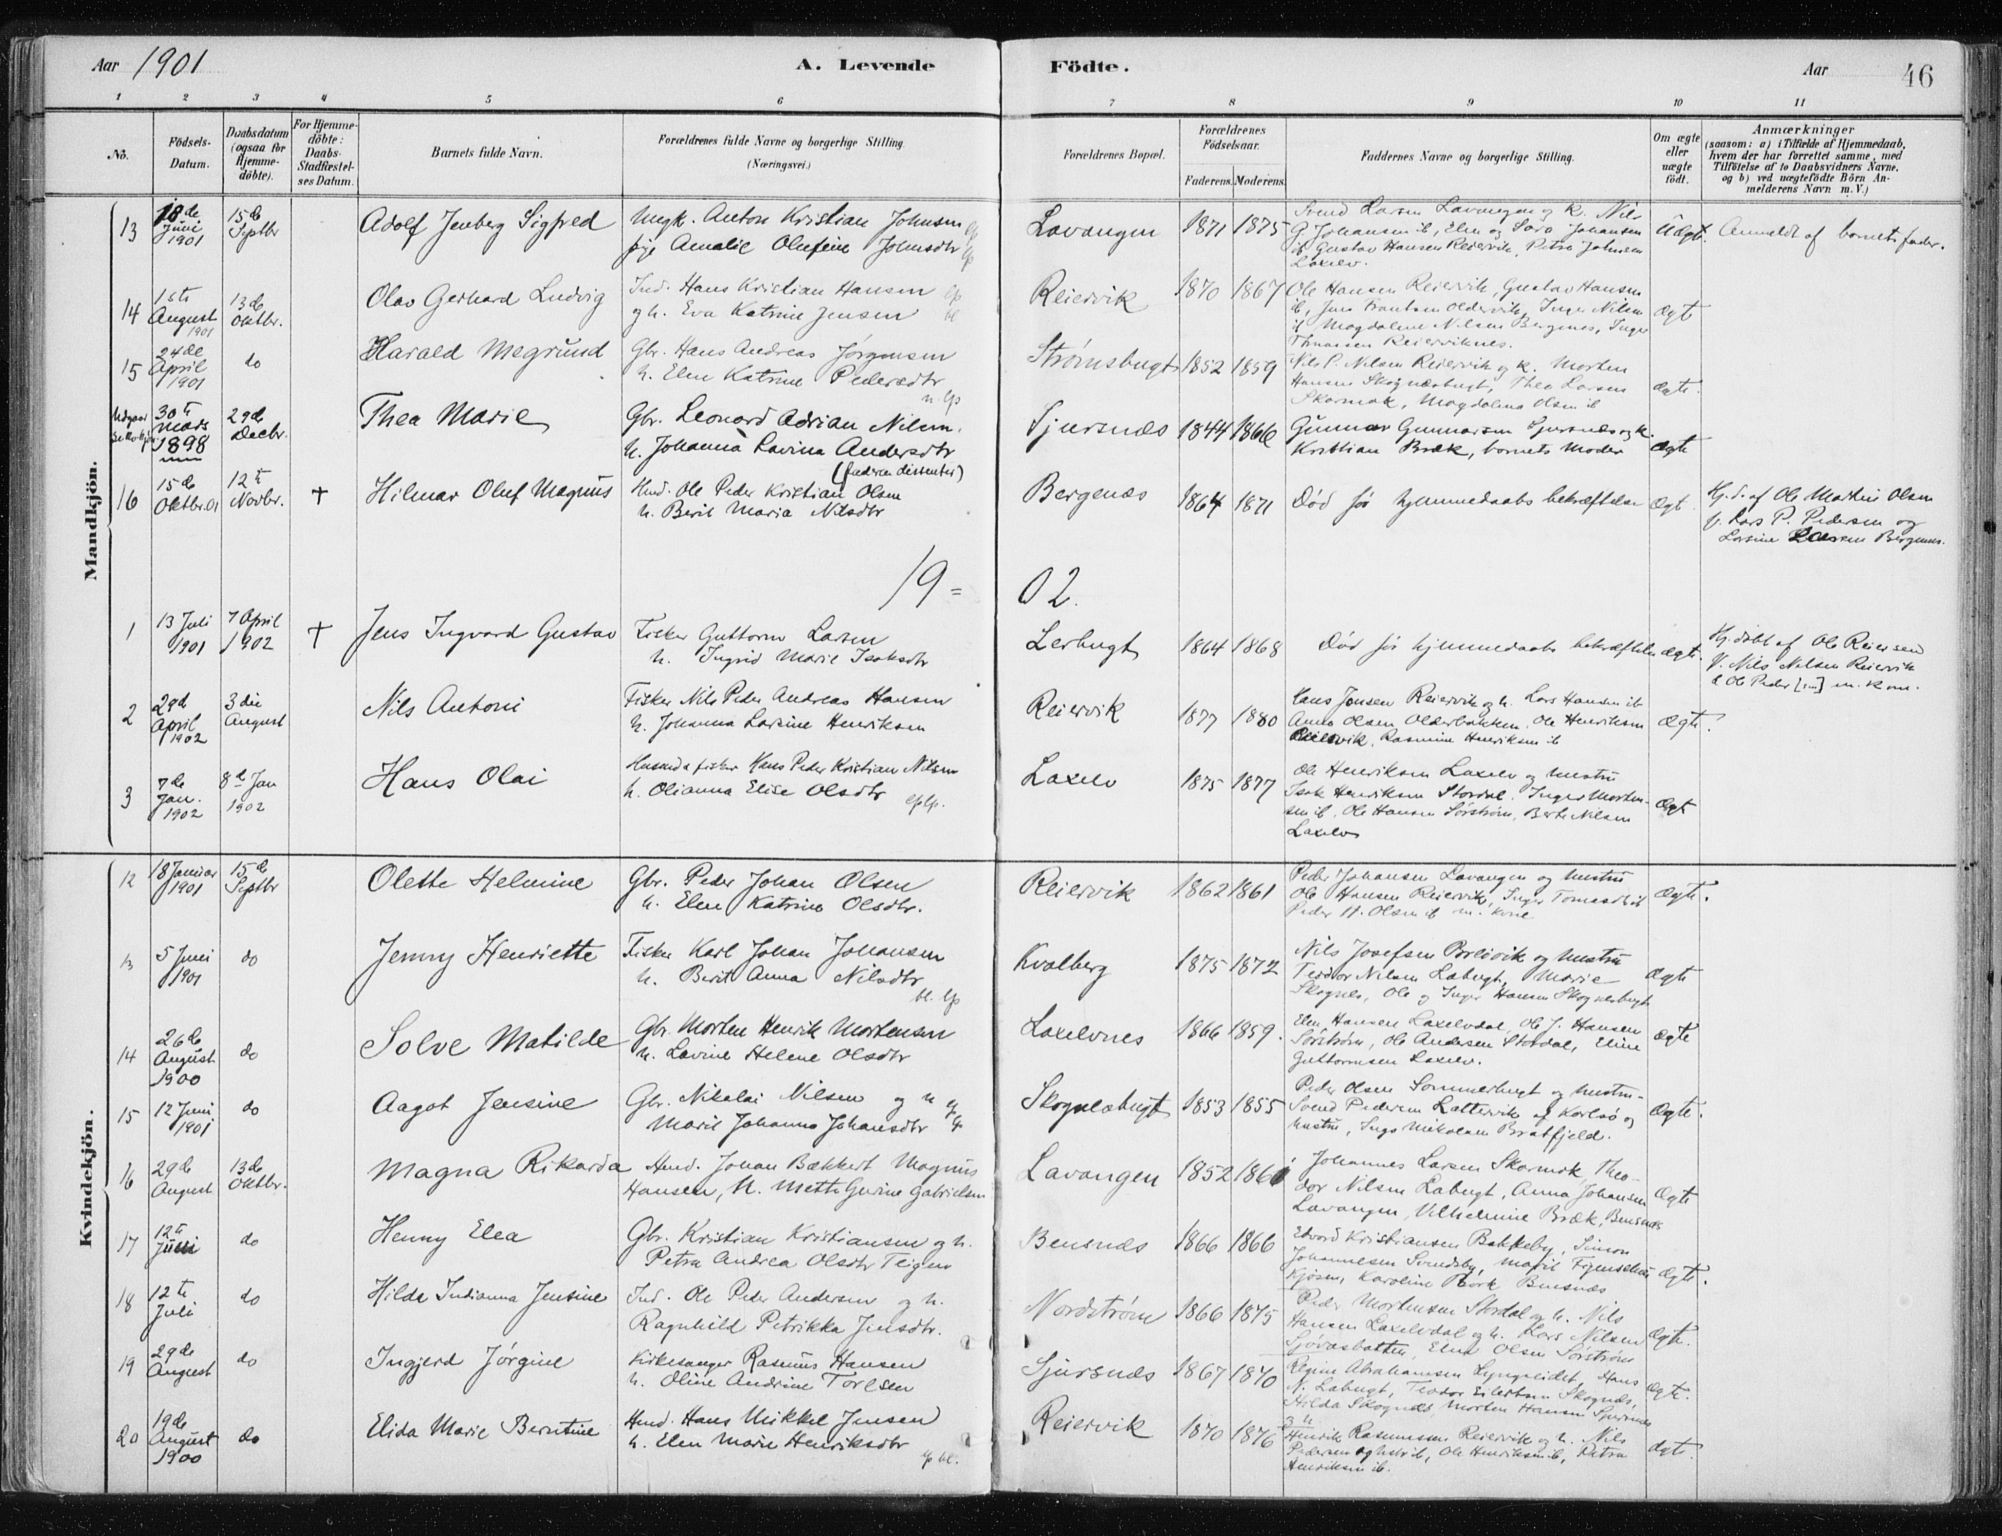 Aar 1901
A. Levende
Födte.
Aar
46
1 2 3 4 5 6 7 8 9 10 11
No.
Födsels-Datum.
Daabsdatum (ogsaa for Hjemmedöbte).
For Hjemmedöbte: Daabs-Stadfæstelses Datum.
Barnets fulde Navn.
Forældrenes fulde Navne og borgerlige Stilling. (Næringsvei.)
Forældrenes Bopæl.
Forældrenes Födselsaar.
Faderens. Moderens.
Faddernes Navne og borgerlige Stilling.
Om ægte eller uægte födt.
Anmærkninger
(saasom: a) i Tilfælde af Hjemmedaab, hvem der har forrettet samme, med Tilföielse af to Daabsvidners Navne, og b) ved uægtefödte Börn Anmelderens Navn m. V.)
Mandkjön.
13 18de Juni 1901 15de Septbr Adolf Jenberg Sigfred Ungk. Anton Kristian Johnsen
pige Amalie Olufine Johnsdtr
Lavangen 1871 1875 Svend Larsen Lavangen og k. Nils
G. Johansen ib, Elen og Sara Johansen
ib Gustav Hansen Reiervik, Petra Johnsen
Laxelv.
Uægt. Anmeldt af barnets fader.
14 1ste August 1901 13de Oktbr. Olav Gerhard Ludvig Ind. Hans Kristian Hansen
og h. Eva Katrine Jensen
Reiervik 1870 1867 Ole Hansen Reiervik, Gustav Hansen
ib, Jens Frantsen Oldervik, Inger Nilsen
ib Magdalene Nilsen Bergenes, Inger
Thomassen Reierviknes.
Ægte
15 24de April 1901 do Harald Megrund Gbr. Hans Andreas Jørgensen
h. Elen Katrine Pedersdtr
Strømsbugt 1852 1859 Nils P. Nilsen Reiervik og k. Morten
Hansen Skognæsbugt, Thea Larsen
Skarmok, Magdalena Olsen ib
Ægte
30te Mars 1898 29de Decbr. Thea Marie Gbr. Leonard Adrian Nilsen.
h. Johanna Lavina Andersdtr
(faderen dissenter)
Sjursnæs 1844 1866 Gunnar Gunnarsen Sjursnæs og k.
Kristian Bræk, barnets Moder
Ægte
16 15de Oktbr. 01 12te Novbr. † Hilmar Oluf Magnus Hmd. Ole Peder Kristian Olsen
h. Berit Maria Nilsdtr
Bergenæs 1864 1871 Død før hjemmedaabs bekræftelse Ægt. Hj. d. af Ole Martin Olsen
f. Lars P. Pedersen og
Larsine Larsen Bergenes.
19 = 02.
1 13 Juli 1901 7 April 1902 † Jens Ingvard Gustav Fisker Guttorm Larsen
h. Ingrid Marie Isaksdtr
Lerbugt 1864 1868 Død før hjemmedaabs bekræftelse ægte. Hj. døbt af Ole Reiersen
V. Nils Nilsen Reiervik
& Ole Peder m. kone.
2 22d April 1902 3die August Nils Antoni Fisker Nils Peder Andreas Hansen
h. Johanna Larsine Henriksen
Reiervik 1877 1880 Hans Jensen Reiervik og h. Lars Hansen ib
Anna Olsen Olderbakken, Ole Henriksen
Reiervik, Rasmine Henriksen ib
Ægte
3 7de Jan. 1902 8de Jan 1902 Hans Olai Husmd & fisker Hans Peder Kristian Nilsen
h. Olianna Elise Olsdtr
Laxelv 1875 1877 Ole Henriksen Laxelv og hustru
Isak Henriksen Stordal. Inger Morten-
sen ib, Ole Hansen Sørstrøm, Berte Nilsen
Laxelv
Ægt
Kvindekjön.
12 18 Januar 1901 15de Septbr Olette Helmine Gbr. Peder Johan Olsen
h. Elen Katrine Olsdtr.
Reiervik 1862 1861 Peder Johansen Lavangen og hustru
Ole Hansen Reiervik, Inger Tomasdtr ib
Peder H. Olsen ib m. kone
Ægte.
13 5 Juni 1901 do Jenny Henriette Fisker Karl Johan Johansen
h. Berit Anna Nilsdtr
Kvalberg 1875 1872 Nils Josefsen og hustru
Teodor Nilsen Labugt, Marie
Skognes, Ole og Inger Hansen Skognesbugt
Ægte
14 26de August 1900 do Solve Matilde Gbr. Morten Henrik Mortensen
h. Lavine Helene Olsdtr
Laxelvnes 1866 1859. Elen Hansen Laxelvdal, Ole J. Hansen
Sørstrøm, Ole Andersen Stordal, Eline
Guttormsen Laxelv.
Ægte
15 12 Juni 1901 do Aagot Jensine Gbr. Nikolai Nilsen og h
Marie Johanna Johansdtr
Skognesbugt 1853 1855 Peder Olsen Sommerbugt og hustru
Svend Pedersen Lattervik af Karlsø og
hustru, Inga Mikalsen Bratfjeld.
Ægte.
16 29de August 13de Oktbr. Magna Rikarda Hmd. Johan Bækkert Magnus
Hansen, h. Mette Gurine Gabrielsen
Lavangen 1852 1861 Johannes Larsen Skarmok, Theo-
dor Nilsen Labugt, Anna Johansen
Lavangen, Vilhelmine Bræk, Bensnæs
Ægte
17 12te Juli do Henny Elea Gbr. Kristian Kristiansen og h.
Petra Andrea Olsdtr Teigen
Bensnæs 1866 1866 Edvard Kristiansen Bakkeby, Simon
Johannesen Svendsby, Marit
Kjosen, Karoline Bensnæs
Ægte.
18 12te Juli do Hilda Indianna Jensine Ind. Ole Peder Andersen og h.
Ragnhild Petrikka Jensdtr.
Nordstrøm 1866 1875 Peder Mortensen Stordal og h. Nils
Hansen Laxelvdal og h. Lars Nilsen
Sjøvasbotten, Elen Olsen Sørstrøm
Ægte.
19 29de August do Ingjerd Jørgine Kirkesanger Rasmus Hansen
h. Oline Andrine Toresen
Sjursnæs 1867 1870 Regine Abrahamsen Lyngseidet, Hans
N. Labugt, Teodor Eilertsen Skognæs,
Hilda Skognæs, Morten Hansen Sjursnæs
Ægte.
20 19de August 1900 do Elida Marie Berntine Hmd. Hans Mikkel Jensen
h. Elen Marie Henriksdtr
Reiervik 1870 1876 Henrik Rasmussen Reiervik og h. Nils
Pedersen og hstr ib, Ole Henriksen ib, Petra
Henriksen ib.
Ægte